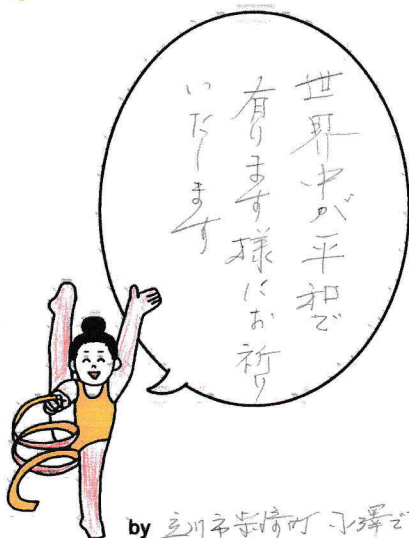 世界中が平和で
有ります様にお祈り
いたします
by 立川市柴崎町 小澤で